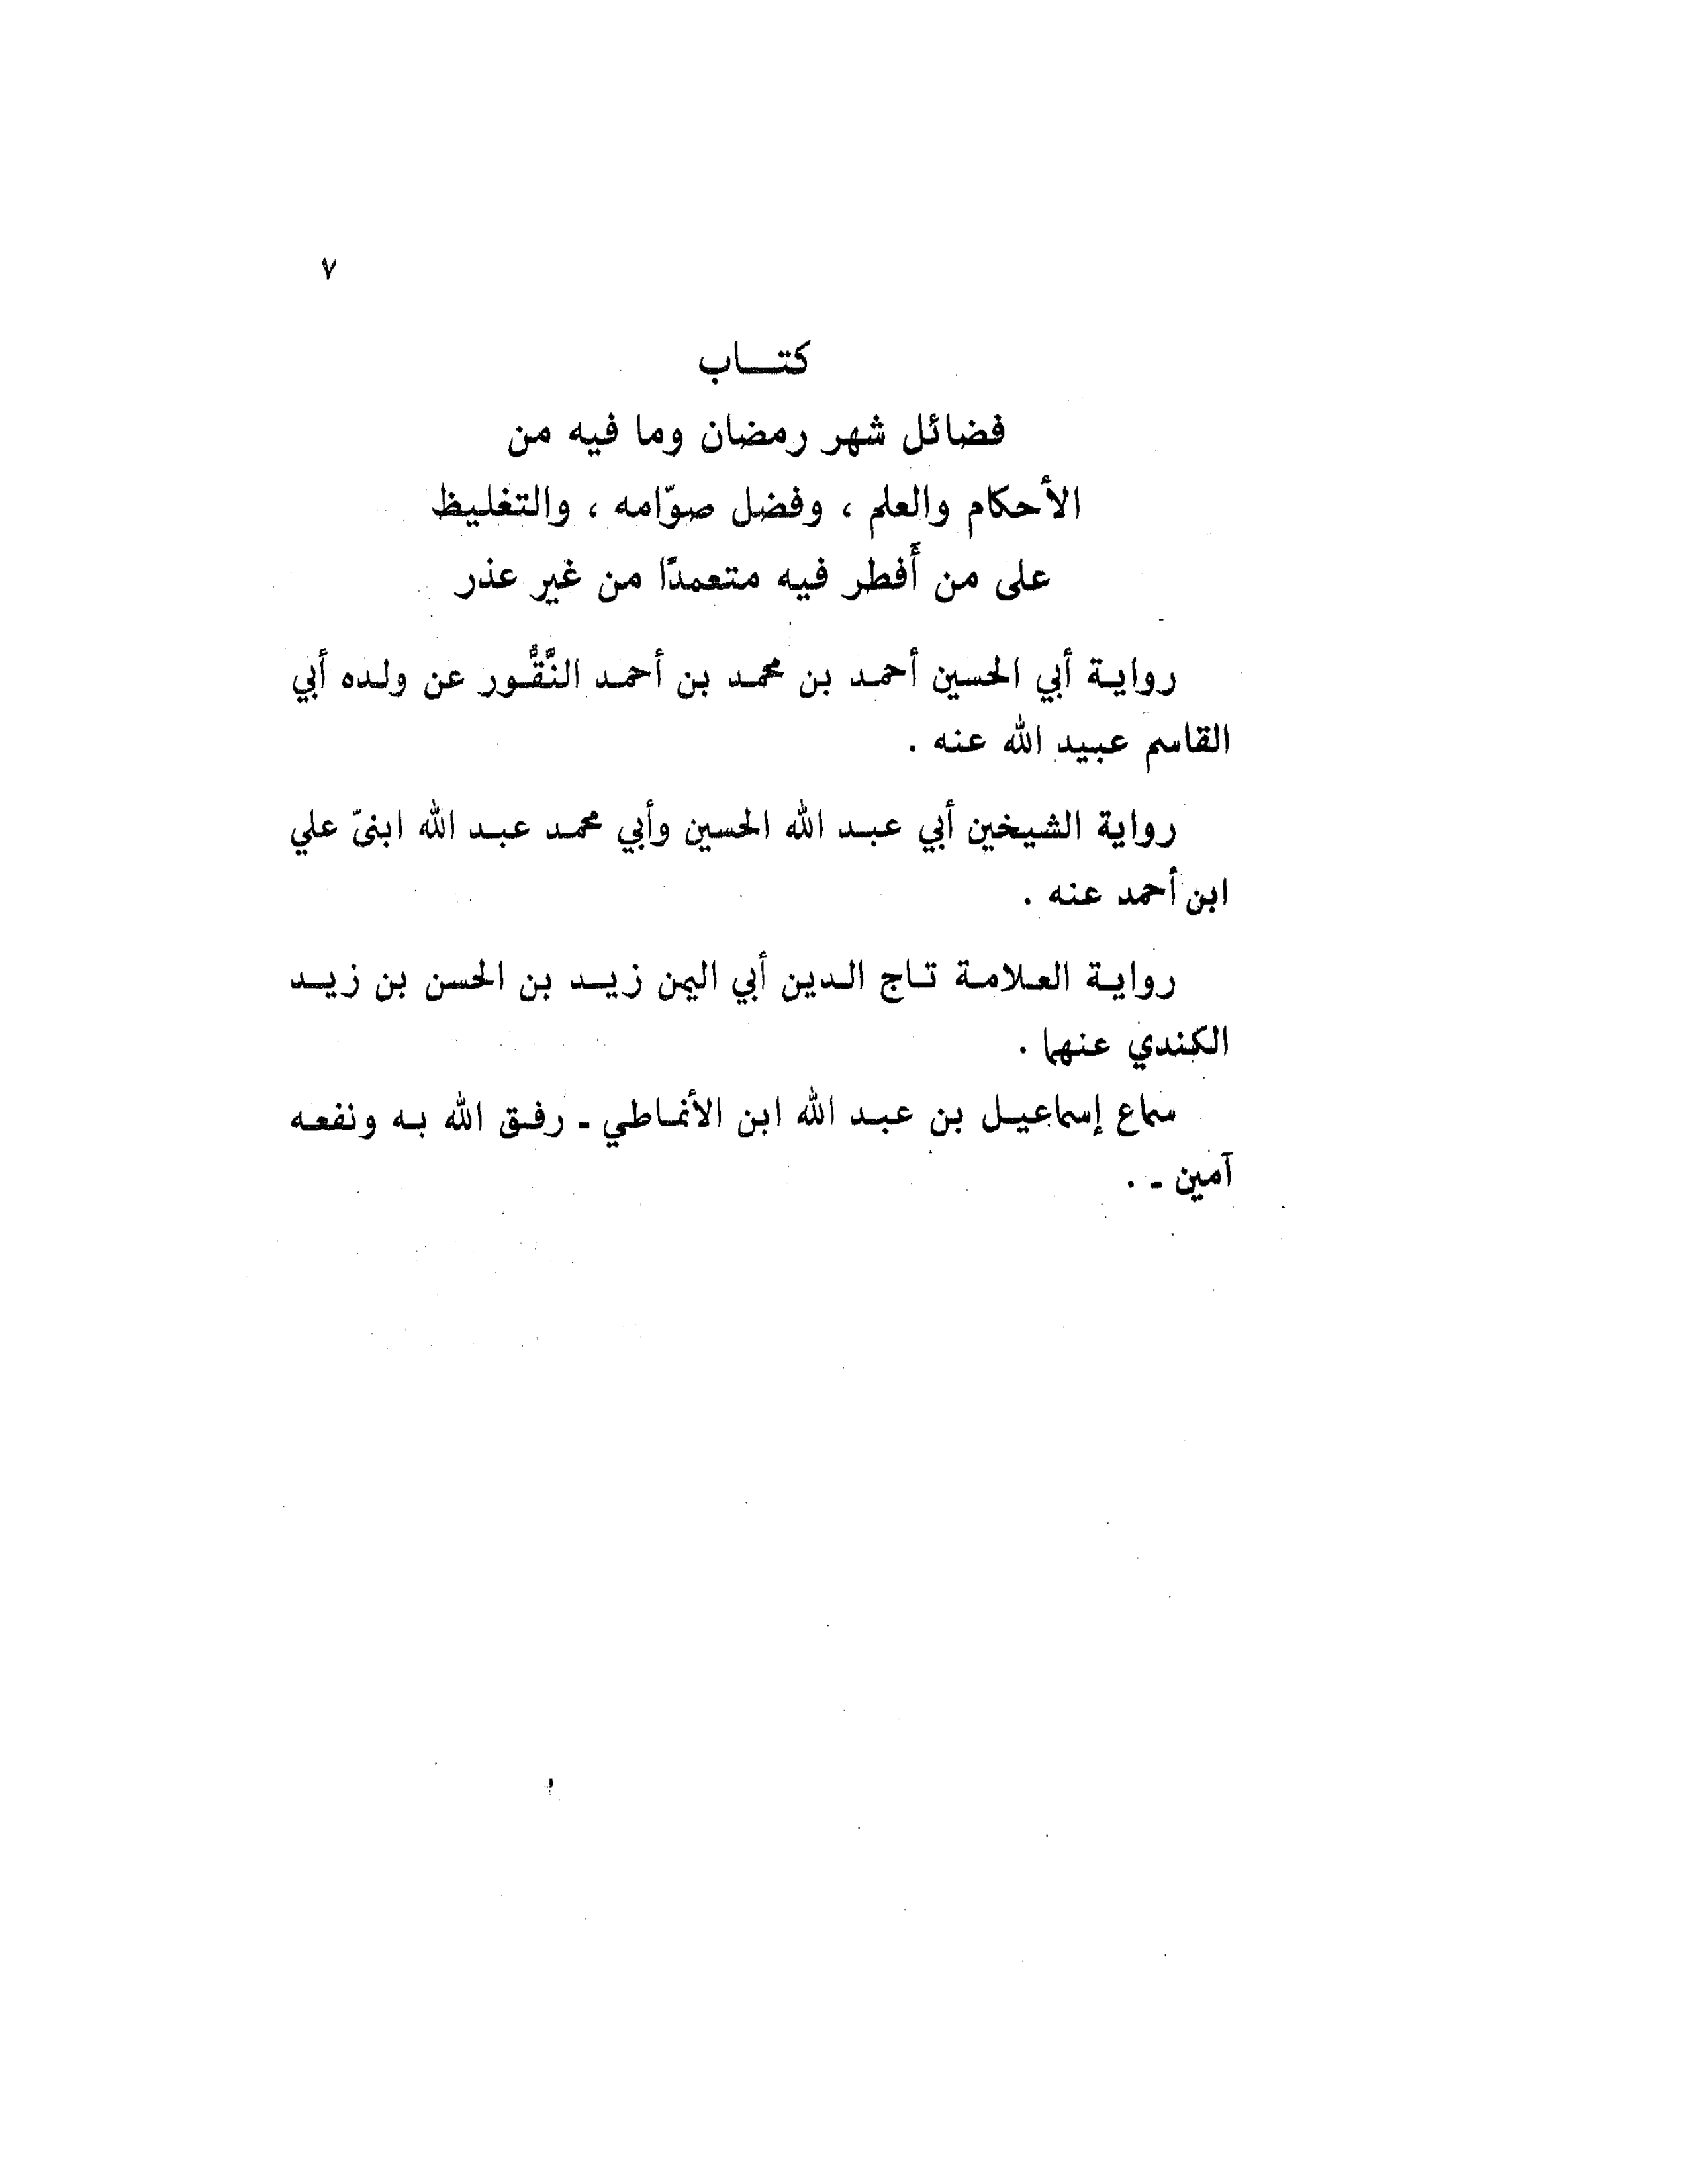 ٧
كتـــاب
فضائل شهر رمضان وما فيه من
الأحكام والعلم ، وفضل صوّامه ، والتغليظ
على من أَفطر فيه متعمدًا من غير عذر
روايـة أبي الحسين أحمـد بن محمـد بن أحمـد النَّقُّـور عن ولـده أبي
القاسم عبيد الله عنه .
رواية الشيخين أبي عبـد الله الحسين وأبي محمـد عبـد الله ابنيّ علي
ابن أحمد عنه .
روايـة العـلامـة تـاج الـدين أبي اليمن زيـد بن الحسن بن زيـد
الكندي عنهما .
سماع إسماعيـل بن عبـد الله ابن الأنمـاطي ـ رفـق الله بـه ونفعـه
آمين ـ .